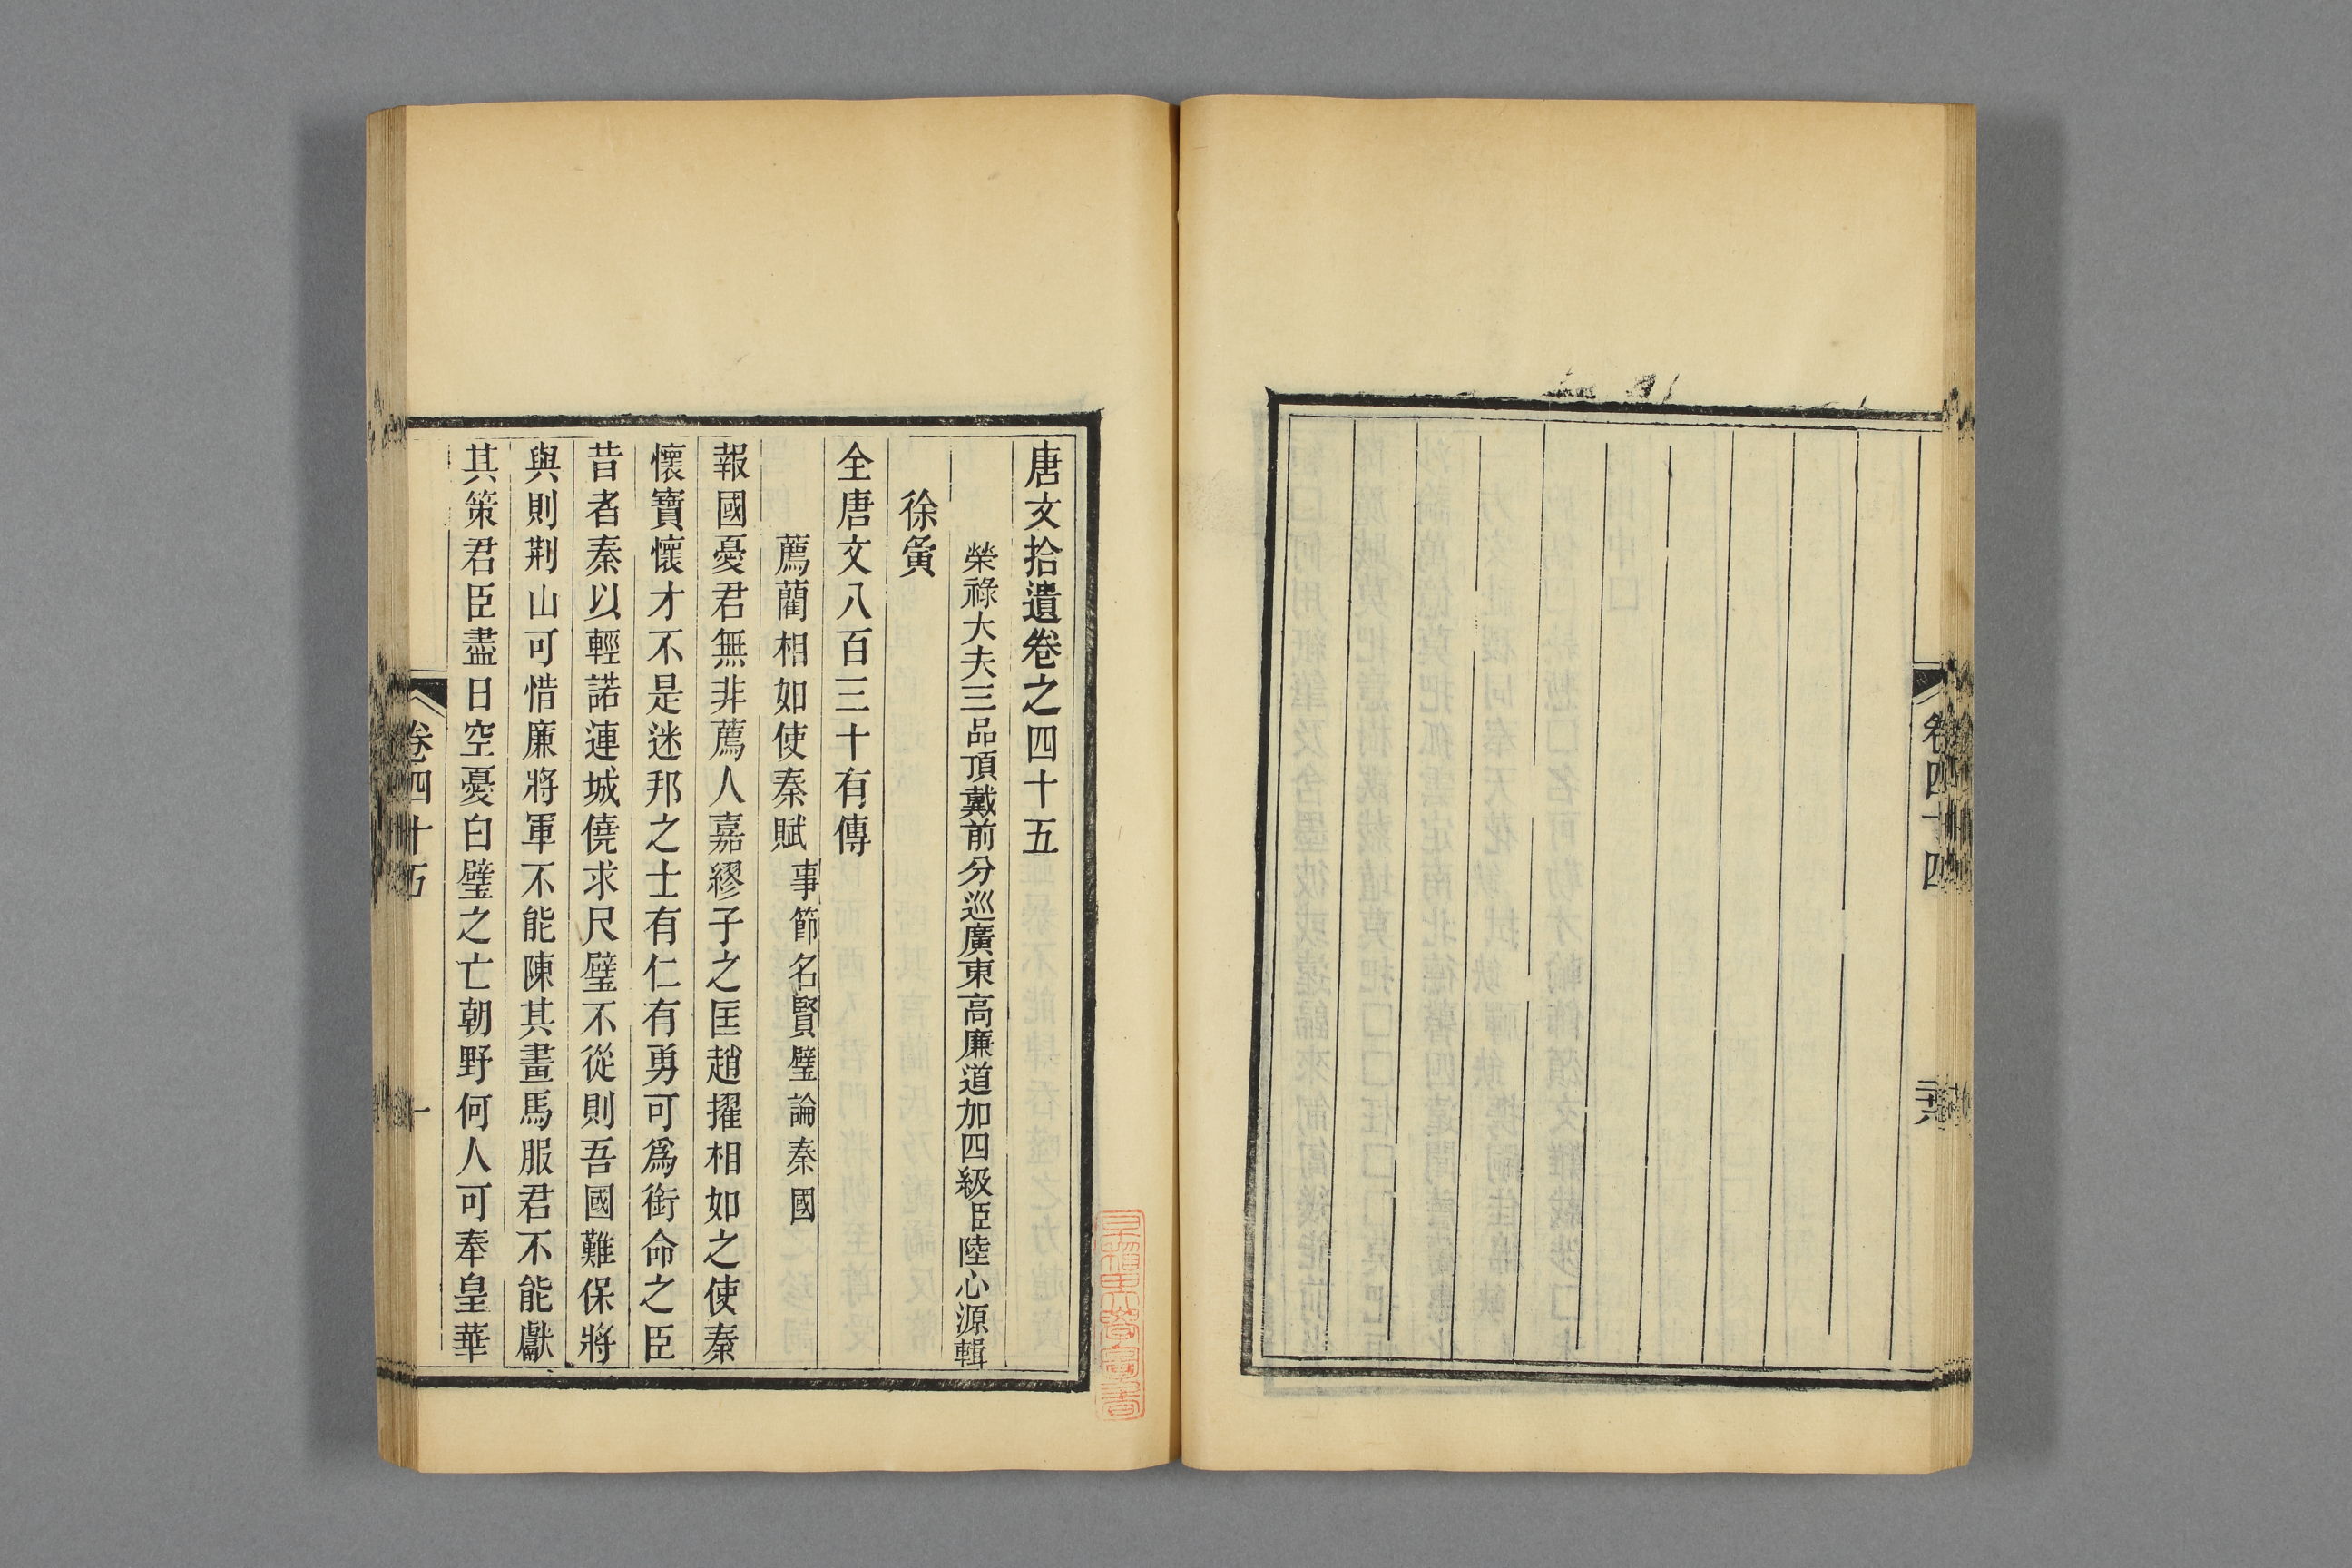 卷四十四
二十六
唐文拾遺卷之四十五
榮祿大夫三品頂戴前分巡廣東高廉道加四級臣陸心源輯
徐夤
全唐文八百三十有傳
薦藺相如使秦賦 事節名賢璧論秦國
報國憂君無非薦人嘉繆子之匡趙擢相如之使秦
懷寶懷才不是迷邦之士有仁有勇可爲銜命之臣
昔者秦以輕諾連城僥求尺璧不從則吾國難保將
與則荆山可惜廉將軍不能陳其畫馬服君不能獻
其策君臣盡日空憂白璧之亡朝野何人可奉皇華
卷四十五
一